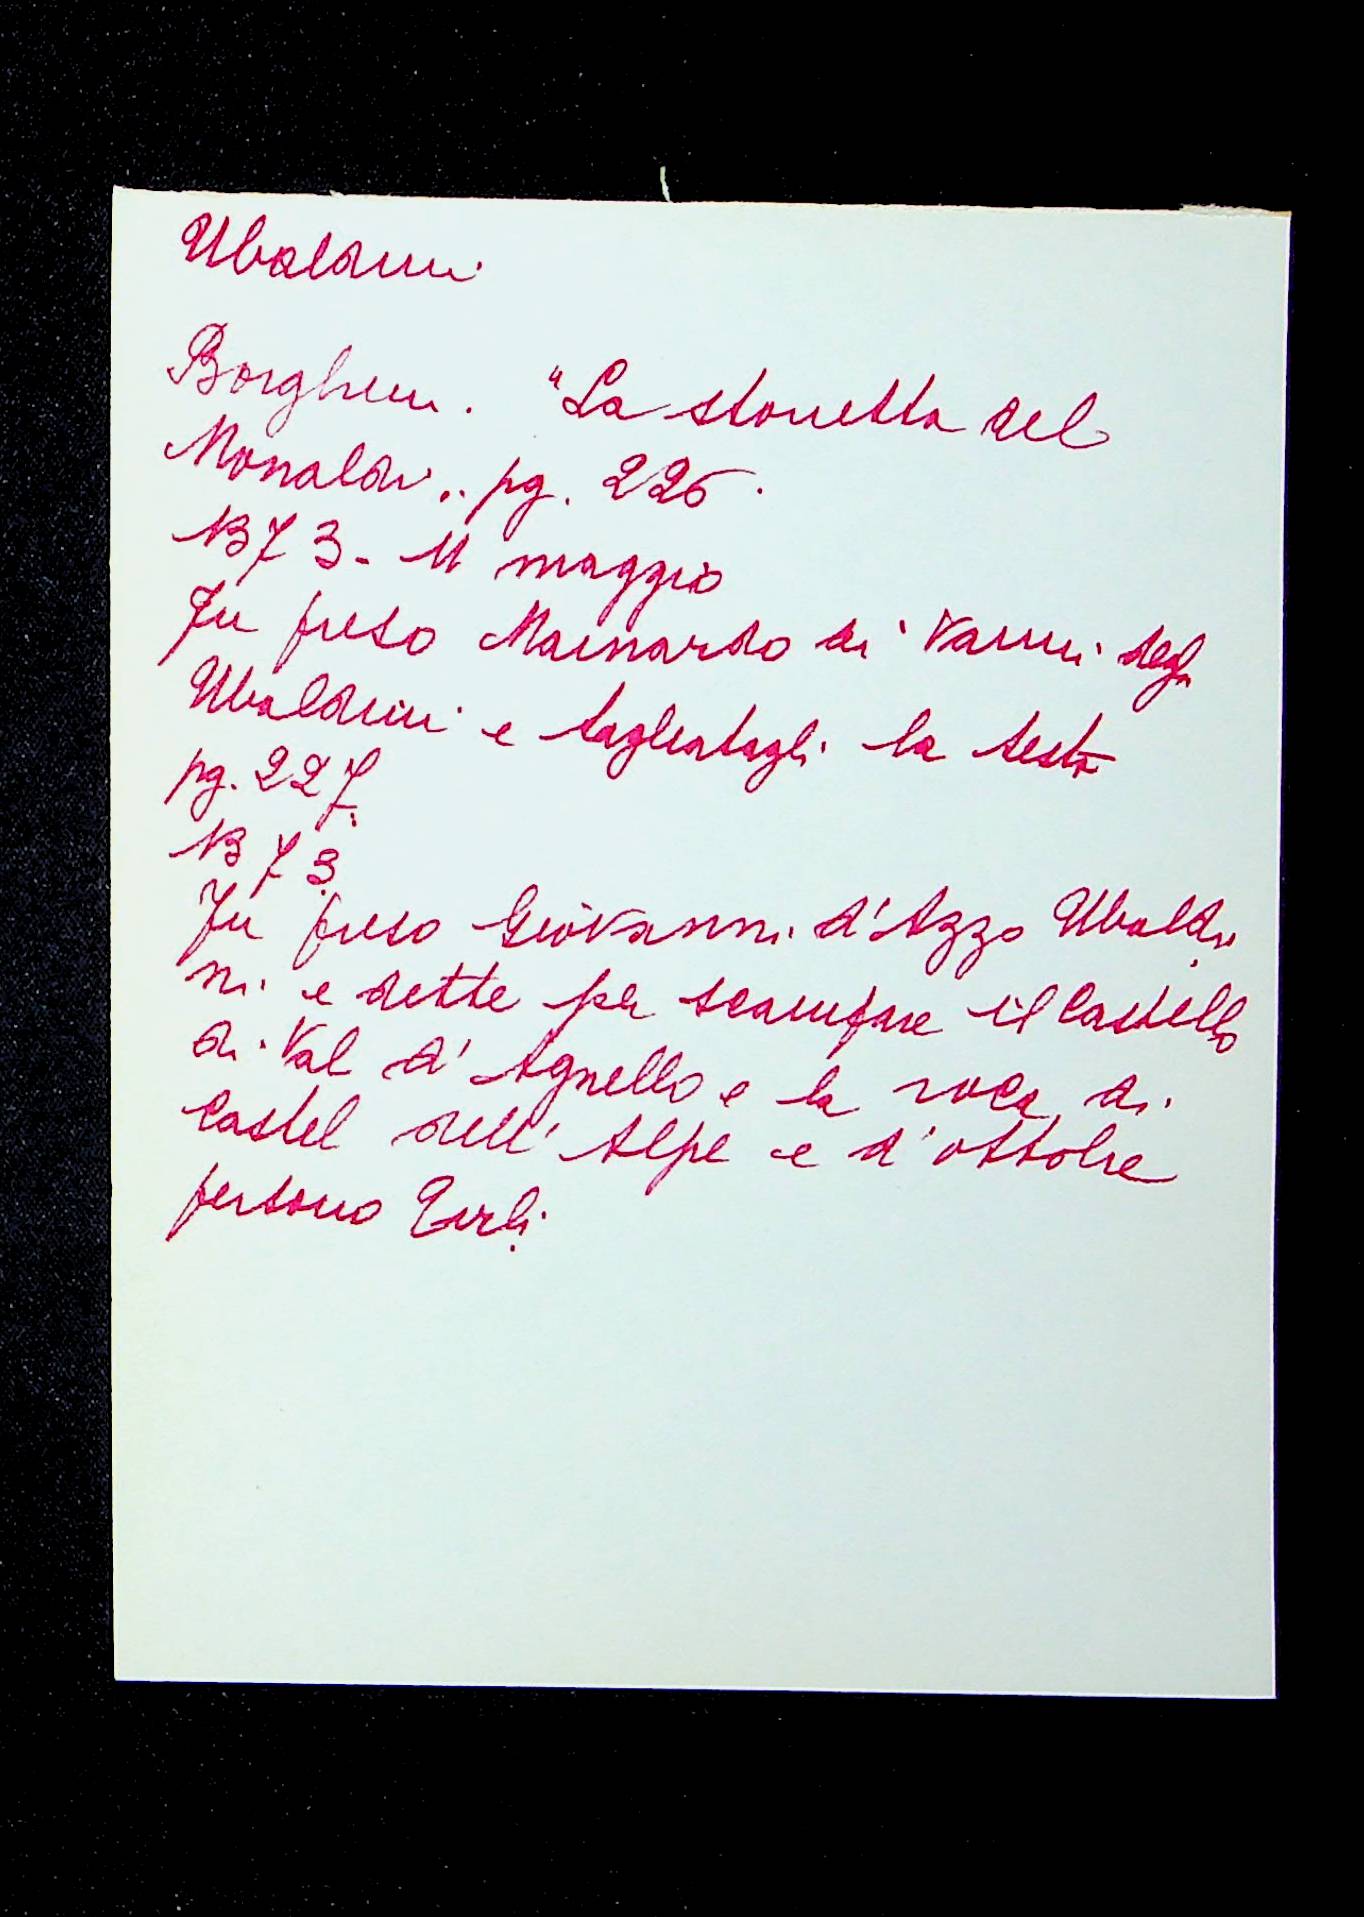 Ubaldini
Borghini. "La storietta del
Monaldi". pg. 226.
1373 - 11 maggio
Fu preso Mainardo di Vanni degli
Ubaldini e tagliatagli la testa
pg. 227.
1373
Fu preso Giovanni d'Azzo Ubaldi
ni e dette per scampare il Castello
di Val d'Agnello e la roca di
Castel dell'Alpe e d'ottobre
persono Tirli